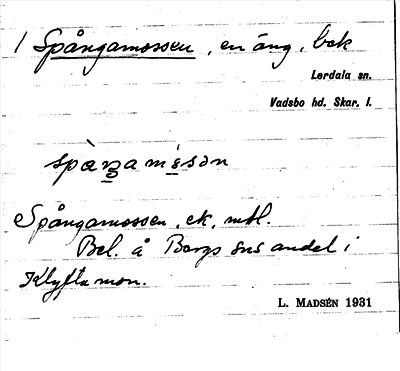 1 Spångamossen, en äng, bek
Lerdala sn.
Vadsbo hd. Skar. l.
spàŋam$\acute{o}$sən
Spångamossen, ek, mtl.
Bel. å Bergs sns andel i
Klyftamon.
L. MADSÉN 1931